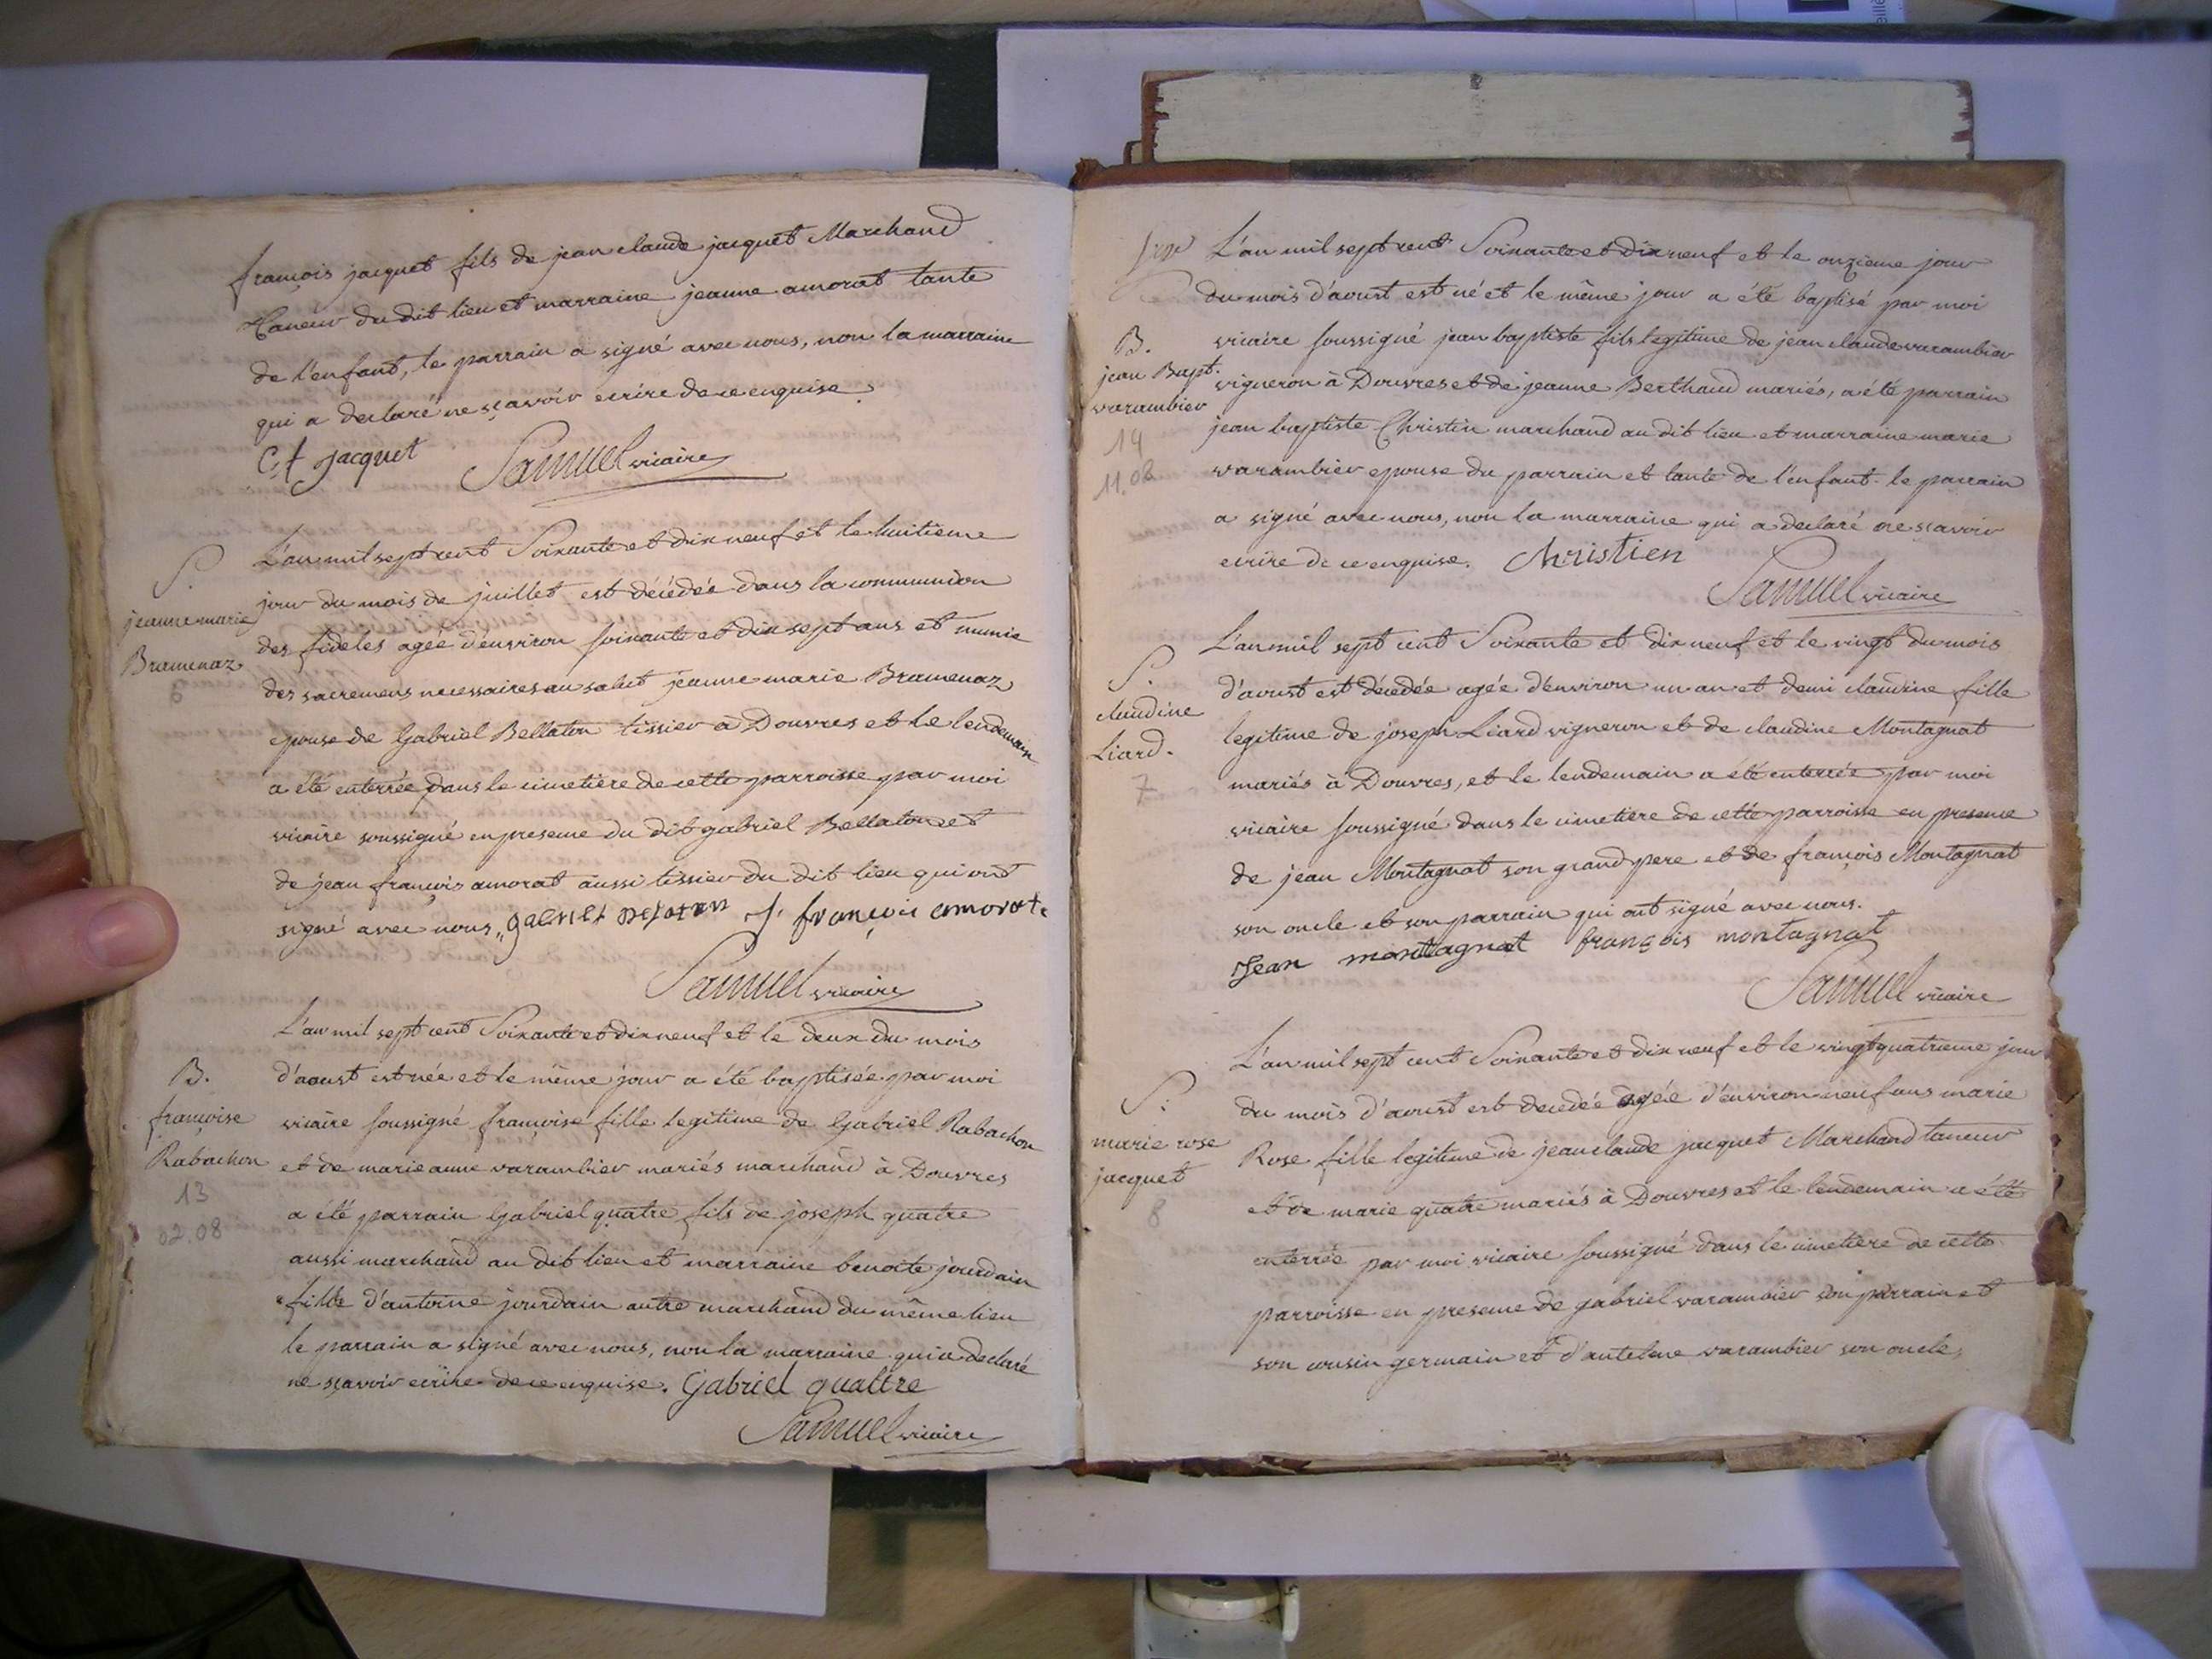 françois jacquet fils de jean claude jacquet Marchand
Taneur du dit lieu et marraine jeanne amorat tante
de l'enfant, le parrain a signé avec nous, non la marraine
qui a declaré ne sçavoir ecrire de ce enquise.
C f jacquet Samuel vicaire
S.
jeanne marie
Bramenaz
L'an mil sept cent Soixante et dix neuf et le huitieme
jour du mois de juillet est décédée dans la communion
des fideles agée d'environ soixante et dix sept ans et munie
des sacremens necessaires au salut jeanne marie Bramenaz
epouse de Gabriel Bellaton tissier à Douvres et le lendemain
a été enterrée dans le cimetière de cette parroisse par moi
vicaire soussigné en presence du dit gabriel Bellaton et
de jean françois amorat aussi tissier du dit lieu qui ont
signé avec nous, gabriel J. françois amorat
Samuel vicaire
B.
françoise
Rabachon
13
02.08
L'an mil sept cent Soixante et dix neuf et le deux du mois
d'aoust est née et le même jour a été baptisée par moi
vicaire soussigné françoise fille legitime de Gabriel Rabachon
et de marie anne varambier mariés marchand à Douvres
a été parrain Gabriel quatre fils de joseph quatre
aussi marchand au dit lieu et marraine benoite jourdain
fille d'antoine jourdain autre marchand du même lieu
le parrain a signé avec nous, non la marraine qui a declaré
ne sçavoir ecrire de ce enquise. Gabriel quattre
Samuel vicaire
B.
jean Bapt.
varambier
14
11.08
L'an mil sept cent Soixante et dix neuf et le onzieme jour
du mois d'aoust est né et le même jour a été baptisé par moi
vicaire soussigné jean baptiste fils legitime de jean claude varambier
vigneron à Douvres et de jeanne Berthaud mariés, a été parrain
jean baptiste Christin marchand au dit lieu et marraine marie
varambier epouse du parrain et tante de l'enfant. le parrain
a signé avec nous, non la marraine qui a declaré ne sçavoir
ecrire de ce enquise. Christien
Samuel vicaire
S.
claudine
Liard.
7
L'an mil sept cent Soixante et dix neuf et le vingt du mois
d'aoust est décedée agée d'environ un an et demi claudine fille
legitime de joseph Liard vigneron et de claudine Montagnat
mariés à Douvres, et le lendemain a été enterrée par moi
vicaire soussigné dans le cimetiere de cette parroisse en presence
de jean Montagnat son grand pere et de françois Montagnat
son oncle et son parrain qui ont signé avec nous.
Jean montagnat françois montagnat
Samuel vicaire
S.
marie rose
jacquet
8
L'an mil sept cent Soixante et dix neuf et le vingt quatrieme jour
du mois d'aoust est decedée agée d'environ neuf ans marie
Rose fille legitime de jean claude jacquet Marchand taneur
et de marie quatre mariés à Douvres et le lendemain a été
enterrée par moi vicaire soussigné dans le cimetière de cette
parroisse en presence de gabriel varambier son parrain et
son cousin germain et d'antelme varambier son oncle,